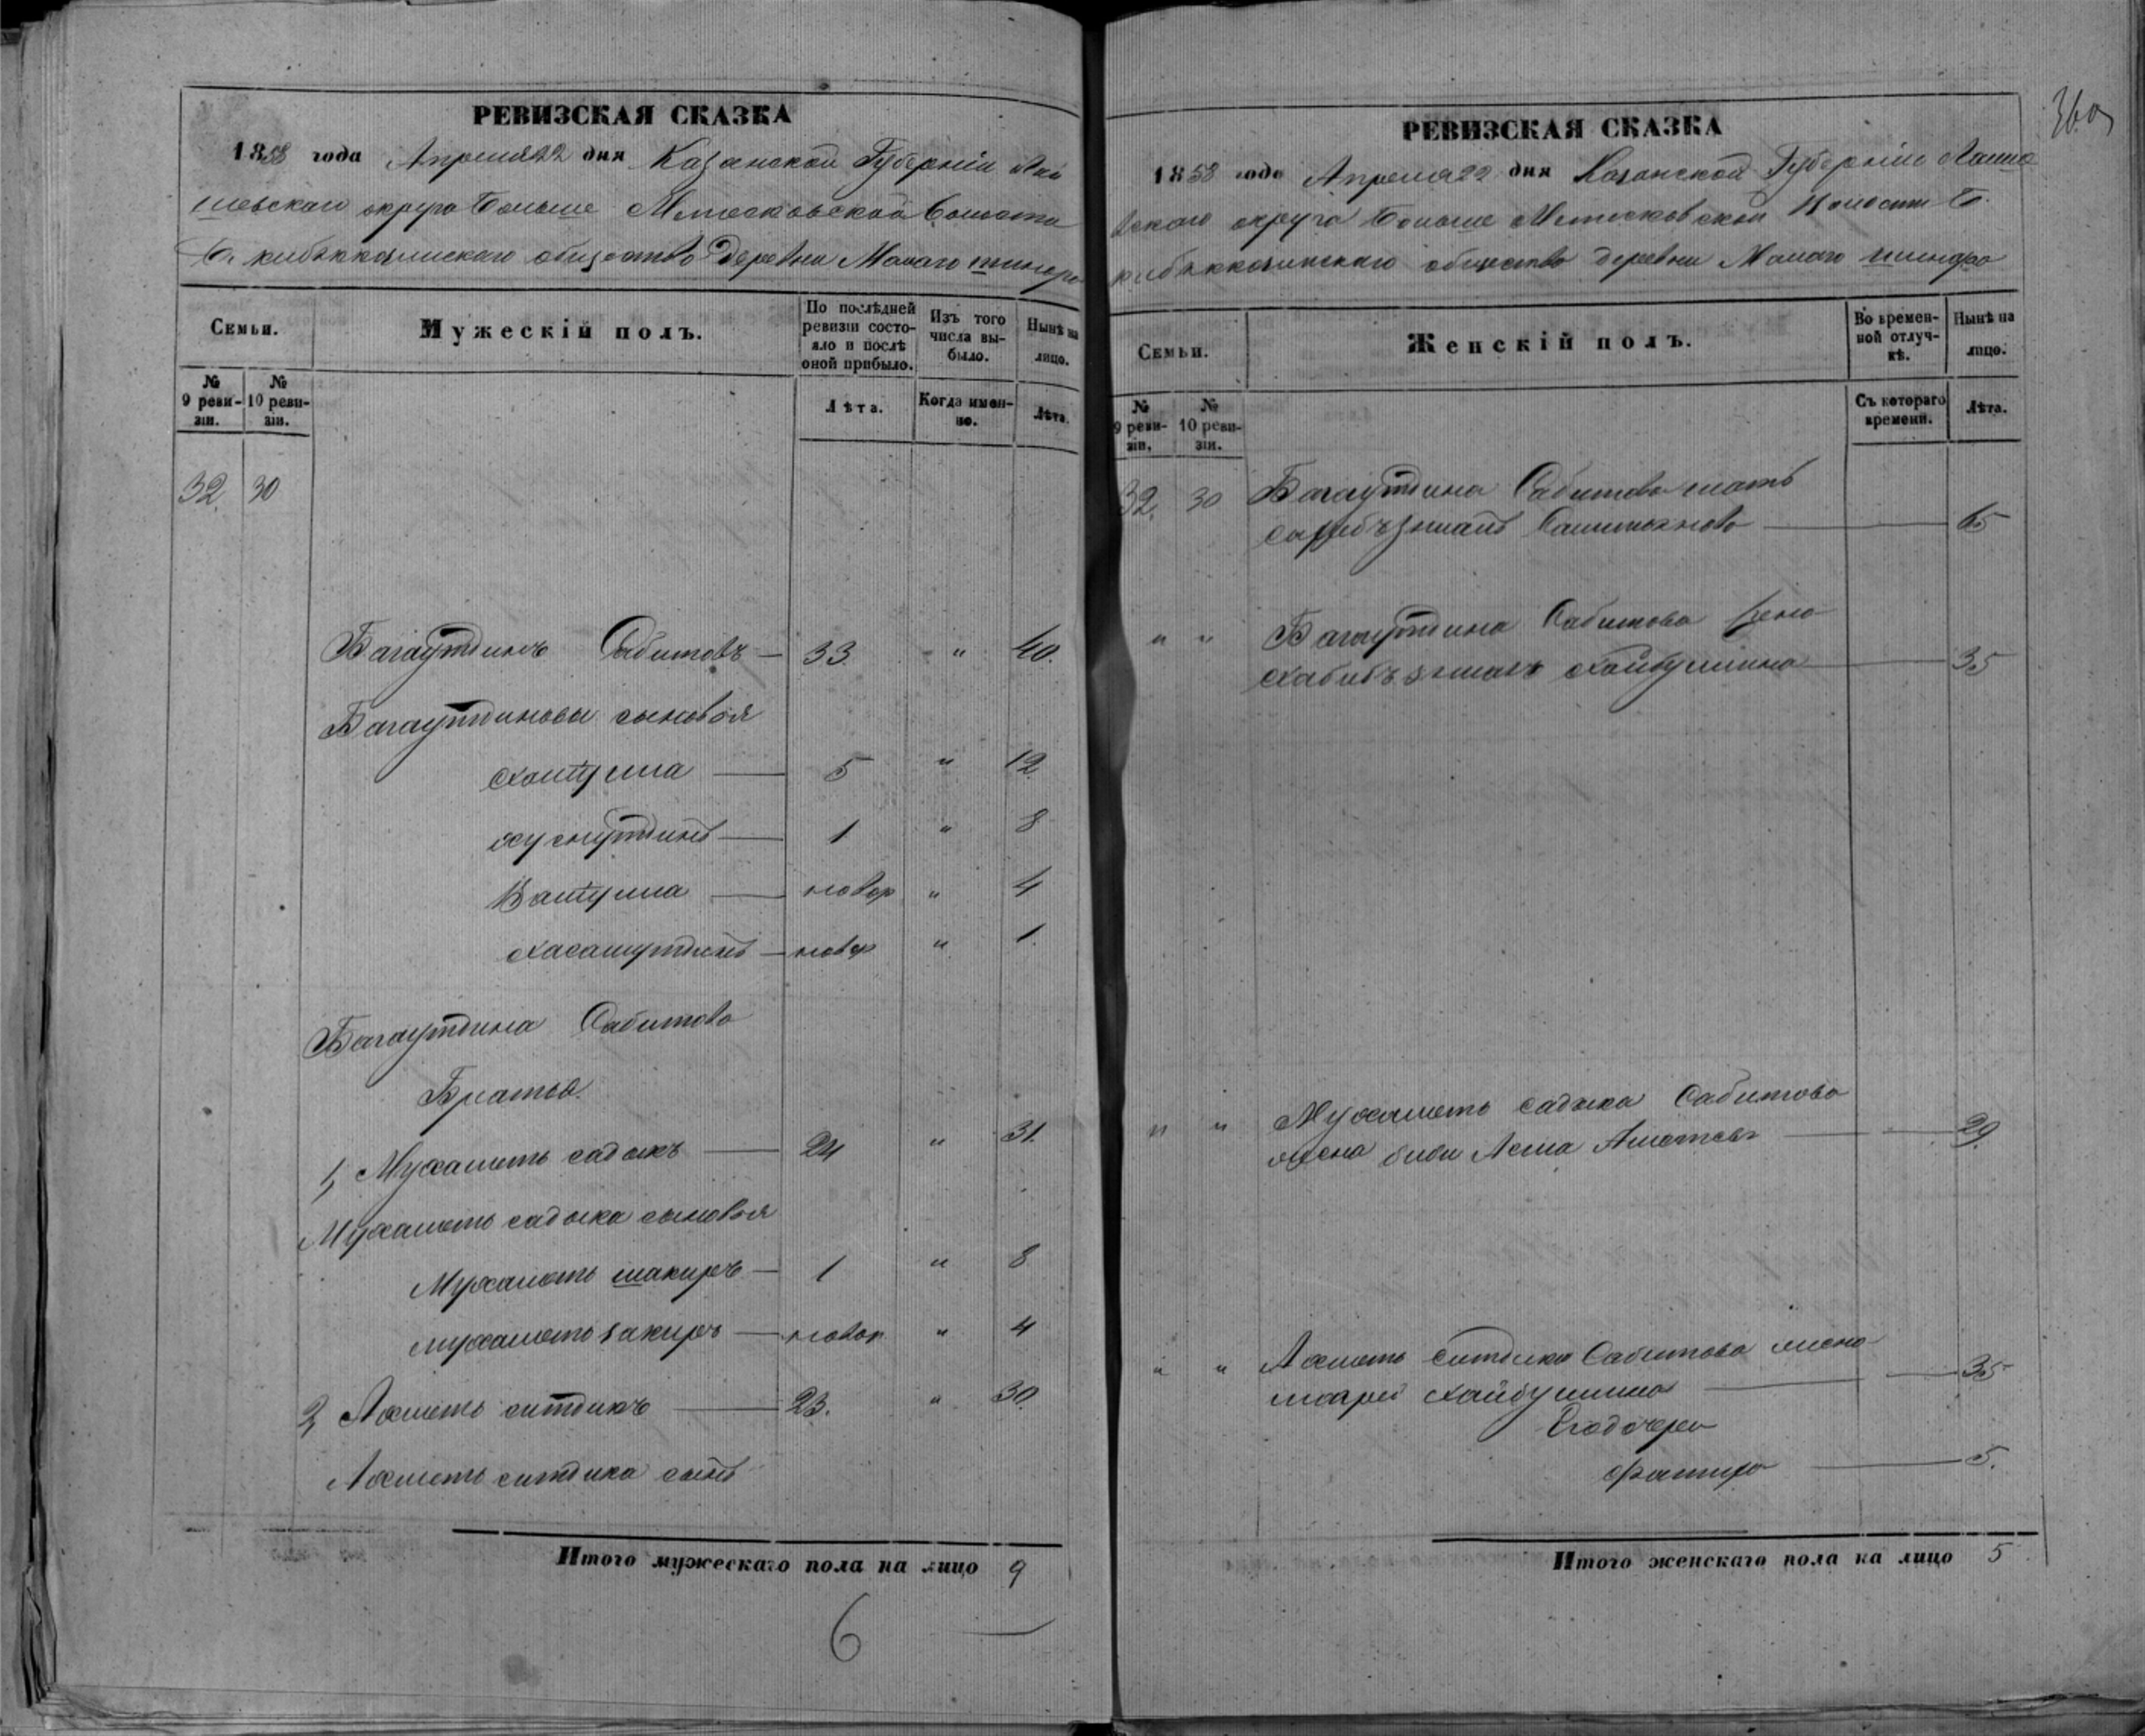 РЕВИЗСКАЯ СКАЗКА
1858 года Апреля 22 дня Казанской Губернiи Лаи
шевскаго округа Больше Метесковской Волости
Б. кибяккозинскаго общества деревни Малаго шинара
Семьи.
Мужескiй полъ.
По послѣдней ревизiи состояло и послѣ оной прибыло.
Изъ того числа выбыло.
Нынѣ на лицо.
№ 9 ревизiи.
№ 10 ревизiи.
Лѣта.
Когда именно.
Лѣта.
32. 30
Багаутдинъ Сабитовъ — 33. " 40.
Багаутдиновы сыновья
Хайрулла — 5 " 12
хуснутдинъ — 1 " 8
Валиулла — новор " 4
хасамутдинъ — новор " 1.
Багаутдина Сабитова
Братья.
1, Мухаметъ садыкъ — 24 " 31.
Мухаметъ садыка сыновья
Мухаметъ шакиръ — 1 " 8
мухаметъ закиръ — новор " 4
2, Ахметъ ситдикъ — 23. " 30.
Ахметъ ситдика сынъ
Итого мужескаго пола на лицо 9
6
360
РЕВИЗСКАЯ СКАЗКА
1858 года Апреля 22 дня Казанской Губернiи Лаише
вскаго округа Больше Метесковской Волости Б.
кибяккозинскаго общества деревни Малаго шинара
Семьи.
Женскiй полъ.
Во временной отлучкѣ.
Нынѣ на лицо.
№ 9 ревизiи.
№ 10 ревизiи.
Съ котораго времени.
Лѣта.
32. 30 Багаутдина Сабитова мать
— 65
" " Багаутдина Сабитова жена
Хабибъ Хайбуллина — 35
" " Мухаметъ садыка Сабитова
жена биби Асма — 29.
" " Ахметъ ситдика Сабитова жена
Хайбуллина — 35
Его дочери
— 5.
Итого женскаго пола на лицо 5